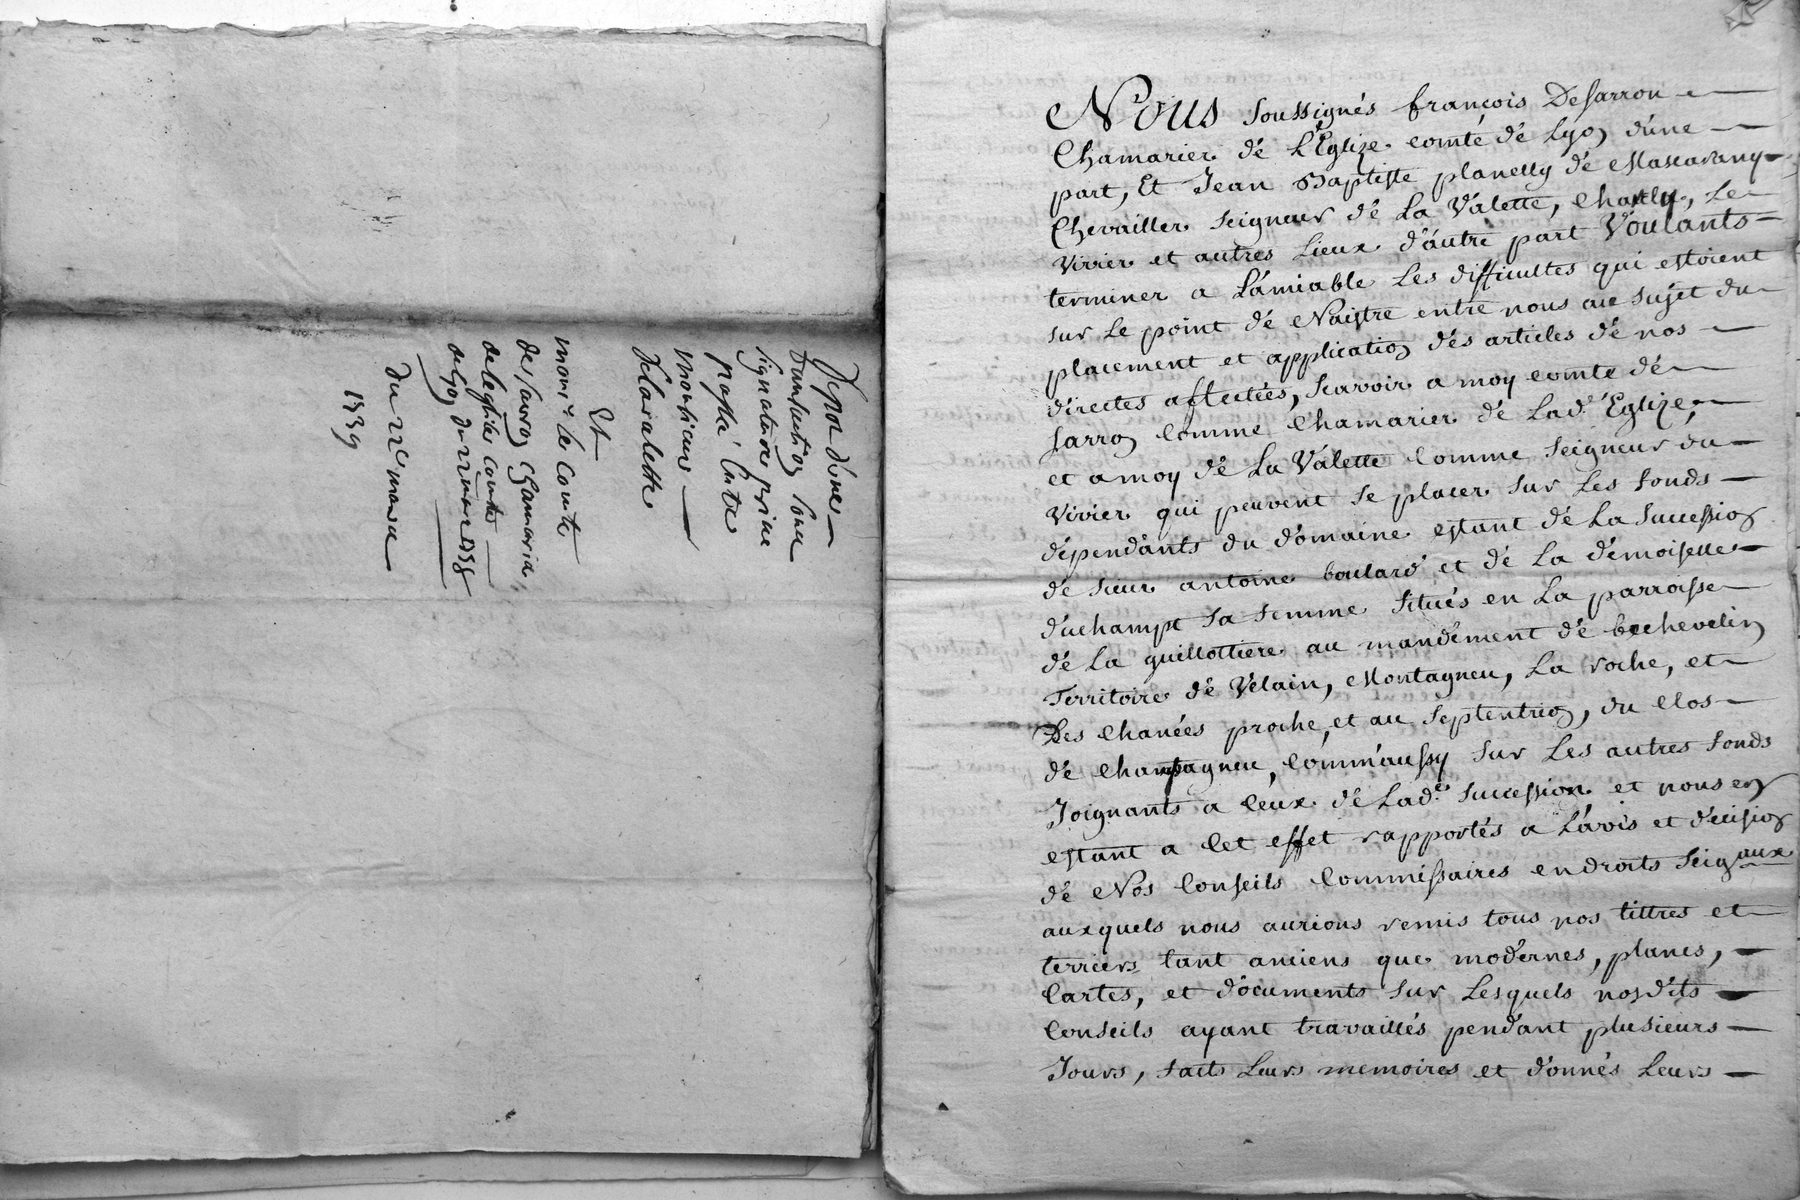 Depot d'une
Transaction sous
signatures privée
passé entre
monsieur
Delavalette
Et
monsr. le comte
de sarron chamarier
de leglise comte
de lyon du
du 22e mars
1739
Nous soussignés françois Desarron
Chamarier dé L'Église comté dé Lyon d'úne
part, Et Jean Baptiste planelly dé Mascarany
Chevailler seigneur dé La Válette, Charly, Le
Vivier et autres Lieux d'áutre part Voulants
terminer a L'ámiable Les difficultes qui estoient
sur Le point dé Naistre entre nous au sujet du
placement et application dés articles dé nos
dírectes affectées, scavoir a moy comte dé
sarron comme Chamarier dé Lad.e Eglize,
et a moy dé La Válette comme seigneur du
Vivier qui peuvent se placer sur Les fonds
dépendánts du dómaine estant dé La succession
dé sieur antoine boulard et dé La démoiselle
duchampt sa femme situés en La parroisse
dé La guillottiere au mandément dé bechevelin
Territoire dé Vélain, Montagneu, La roche, et
Des Chanées proche, et au septentrion, du Clos
dé Champagneu, comm'áussy sur Les autres fonds
Joignants a Ceux dé Lad.e succession et nous en
estant a Cet effet rapportés a L'ávis et décision
dé Nos Conseils Commissaires en droits seigaux
auxquels nous aurions remis tous nos tittres et
terriers tant anciens que modérnes, planes,
Cartes, et dócuments sur Lesquels nosdíts
Conseils ayant travaillés pendánt plusieurs
Jours, faits Leurs memoires et dónnés Leurs